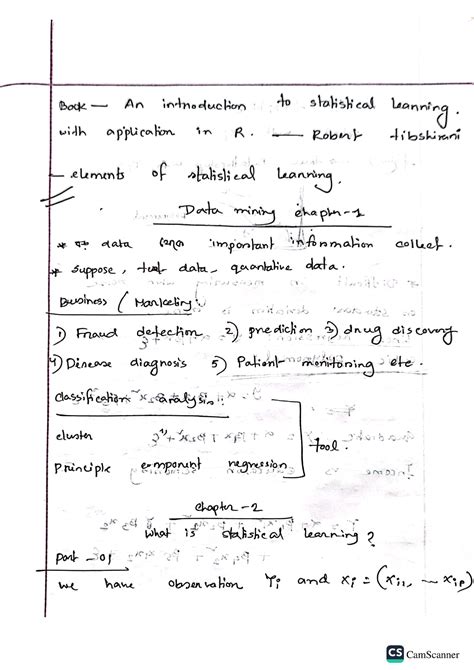 Book — An introduction to statistical learning.
with application in R. — Robert tibshirani
— elements of statistical learning.
Data mining chapter-1
* data থেকে important information collect.
* suppose, text data, quantative data.
Business (Marketing)
1) Fraud detection 2) prediction 3) drug discovery
4) Disease diagnosis 5) Patient monitoring etc.
Classification analysis
cluster
tool.
Principle component regression
chapter -2
What is statistical learning?
part -01
We have observation Yi and Xi = (Xi1, — Xip)
CS CamScanner